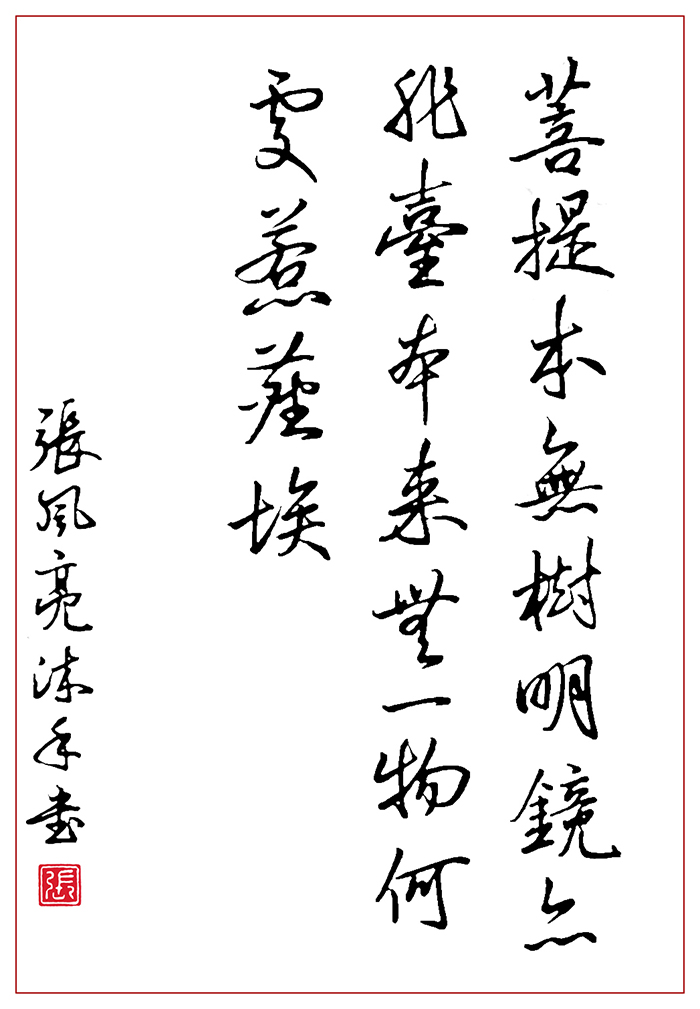 菩提本無樹明鏡亦
非臺本來無一物何
處惹塵埃
張風亮沐手書
張